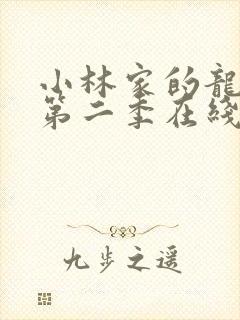 小林家的龍
第二季在綫
九步之遥